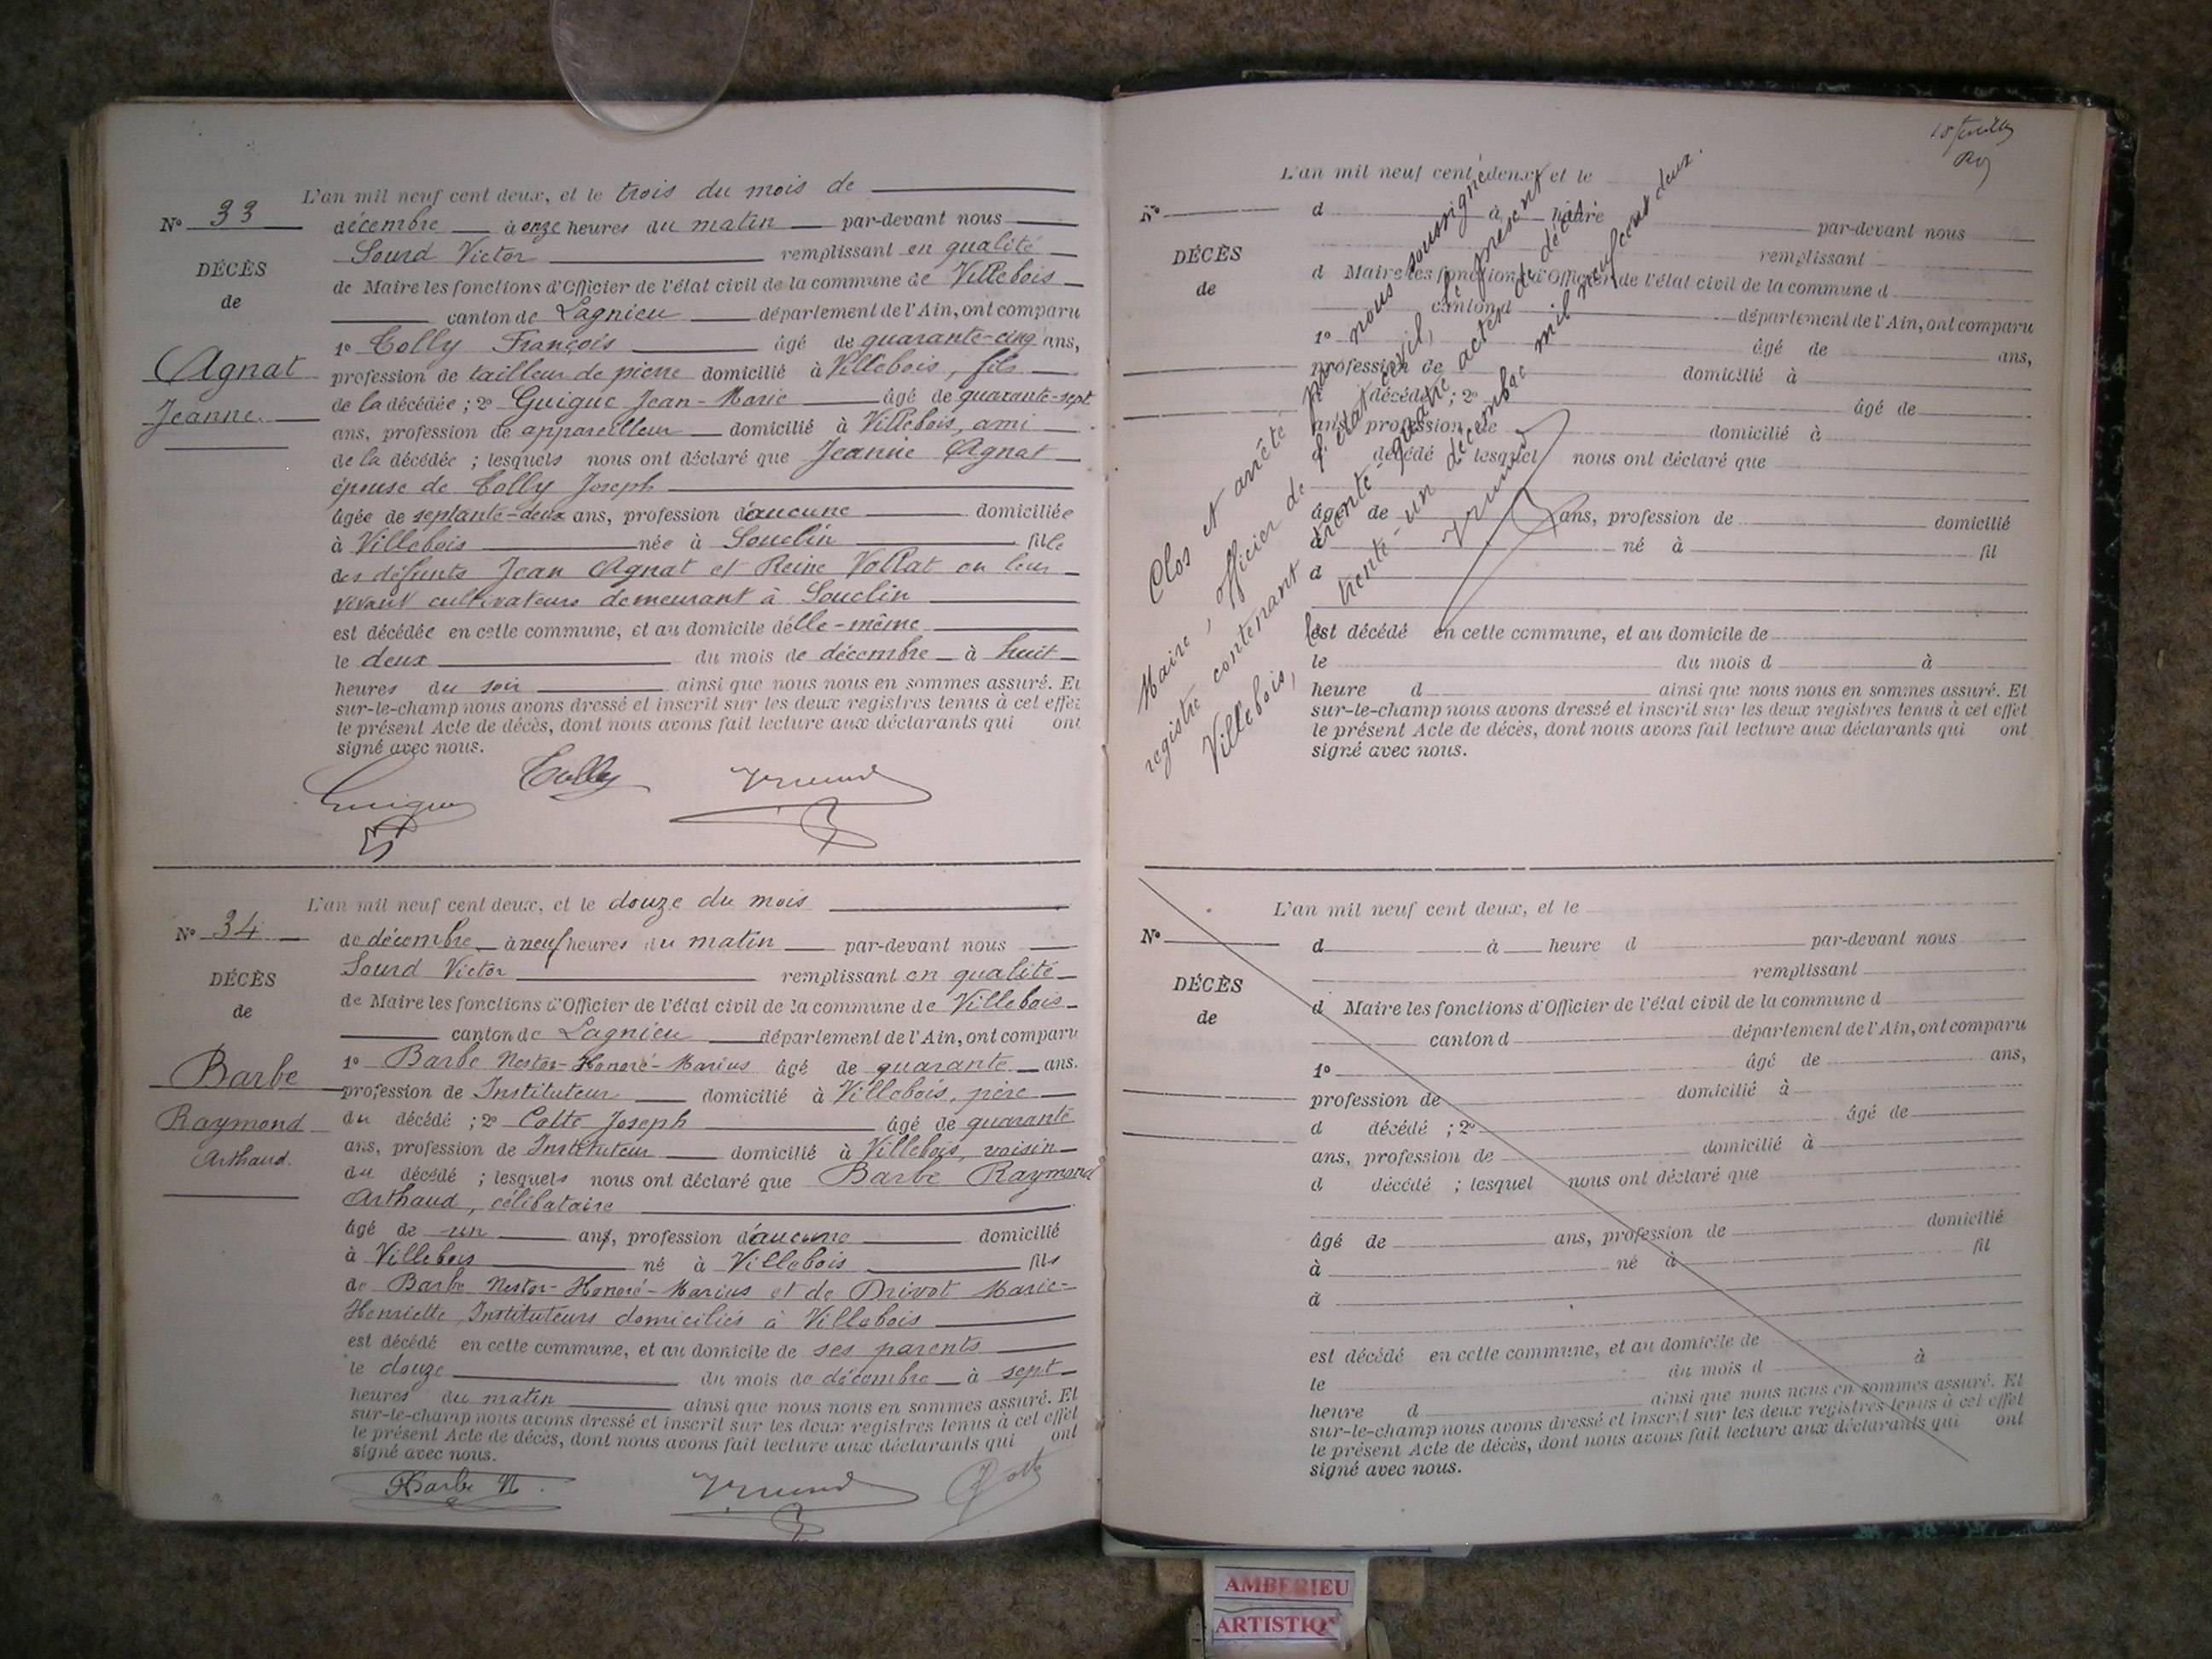 L'an mil neuf cent deux, et le trois du mois de
N° 33
décembre à onze heures du matin par-devant nous
Sourd Victor remplissant en qualité
DÉCÈS
de Maire les fonctions d'Officier de l'état civil de la commune de Villebois
de
canton de Lagnieu département de l'Ain, ont comparu
1° Colly François âgé de quarante-cinq ans,
Agnat
profession de tailleur de pierre domicilié à Villebois, fils
de la décédée ; 2° Guigue Jean-Marie âgé de quarante-sept
Jeanne.
ans, profession de appareilleur domicilié à Villebois, ami
de la décédée ; lesquels nous ont déclaré que Jeanne Agnat
épouse de Colly Joseph
âgée de septante-deux ans, profession d'aucune domiciliée
à Villebois née à Souclin fille
des défunts Jean Agnat et Reine Vollat en leur
vivant cultivateurs demeurant à Souclin
est décédée en cette commune, et au domicile d'elle-même
le deux du mois de décembre à huit
heures du soir ainsi que nous nous en sommes assuré. Et
sur-le-champ nous avons dressé et inscrit sur les deux registres tenus à cet effet
le présent Acte de décès, dont nous avons fait lecture aux déclarants qui ont
signé avec nous.
Guigue Colly
L'an mil neuf cent deux, et le douze du mois
N° 34
de décembre à neuf heures du matin par-devant nous
Sourd Victor remplissant en qualité
DÉCÈS
de Maire les fonctions d'Officier de l'état civil de la commune de Villebois
de
canton de Lagnieu département de l'Ain, ont comparu
1° Barbe Nestor-Honoré-Marius âgé de quarante ans.
Barbe
profession de Instituteur domicilié à Villebois, père
Raymond
du décédé ; 2° Cotte Joseph âgé de quarante
ans, profession de Instituteur domicilié à Villebois, voisin
Arthaud.
du décédé ; lesquels nous ont déclaré que Barbe Raymond
Arthaud, célibataire
âgé de un an, profession d'aucune domicilié
à Villebois né à Villebois fils
de Barbe Nestor-Honoré-Marius et de Drivot Marie-
Henriette, Instituteurs domiciliés à Villebois
est décédé en cette commune, et au domicile de ses parents
le douze du mois de décembre à sept
heures du matin ainsi que nous nous en sommes assuré. Et
sur-le-champ nous avons dressé et inscrit sur les deux registres tenus à cet effet
le présent Acte de décès, dont nous avons fait lecture aux déclarants qui ont
signé avec nous.
Barbe N.
L'an mil neuf cent deux, et le
N°
d à heure
par-devant nous
DÉCÈS
remplissant
d Maire les fonctions d'Officier de l'état civil de la commune d
de
canton d département de l'Ain, ont comparu
1° âgé de ans,
profession de domicilié à
décédé ; 2° âgé de
ans, profession de domicilié à
d décédé lesquel nous ont déclaré que
âgé de ans, profession de domicilié
à né à fil
d
est décédé en cette commune, et au domicile de
le du mois d à
heure d ainsi que nous nous en sommes assuré. Et
sur-le-champ nous avons dressé et inscrit sur les deux registres tenus à cet effet
le présent Acte de décès, dont nous avons fait lecture aux déclarants qui ont
signé avec nous.
Clos et arrêté par nous soussigné
Maire, officier de l'état civil, le présent
registre contenant trente-quatre actes de décès
Villebois, le trente-un décembre mil neuf cent deux.
L'an mil neuf cent deux, et le
N°
d à heure d par-devant nous
remplissant
DÉCÈS
d Maire les fonctions d'Officier de l'état civil de la commune d
de
canton d département de l'Ain, ont comparu
1° âgé de ans,
profession de domicilié à
d décédé ; 2° âgé de
ans, profession de domicilié à
d décédé ; lesquel nous ont déclaré que
âgé de ans, profession de domicilié
à né à fil
d
est décédé en cette commune, et au domicile de
le du mois d à
heure d ainsi que nous nous en sommes assuré. Et
sur-le-champ nous avons dressé et inscrit sur les deux registres tenus à cet effet
le présent Acte de décès, dont nous avons fait lecture aux déclarants qui ont
signé avec nous.
AMBERIEU
ARTISTIQ